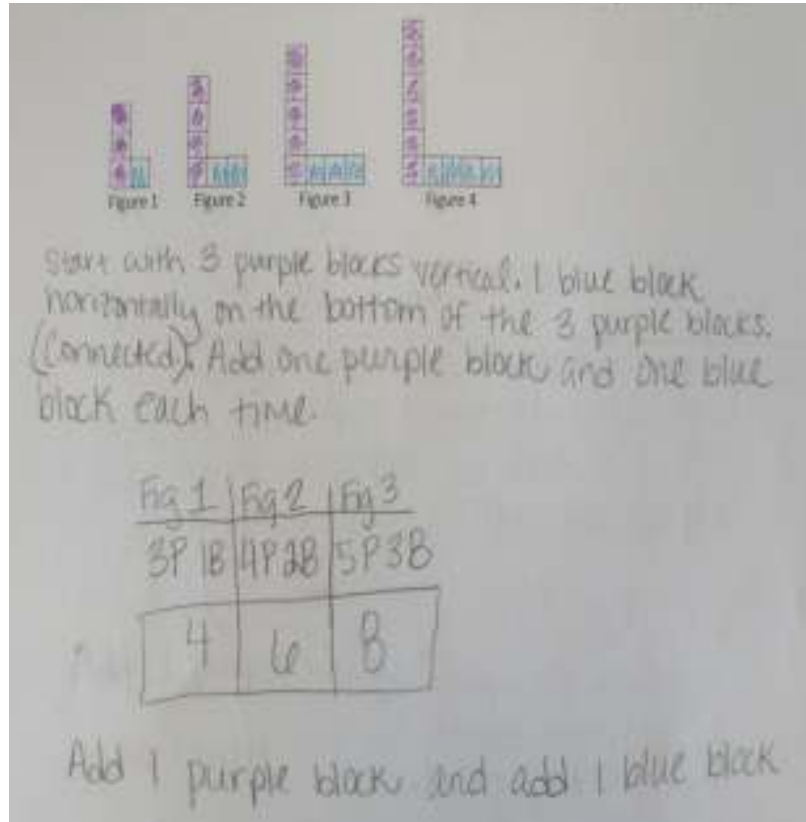 Figure 1 Figure 2 Figure 3 Figure 4
Start with 3 purple blocks vertical. 1 blue block
horizontally on the bottom of the 3 purple blocks.
(Connected). Add one purple block and one blue
block each time.
Fig 1 Fig 2 Fig 3
3P 1B 4P 2B 5P 3B
4 6 8
Add 1 purple block and add 1 blue block